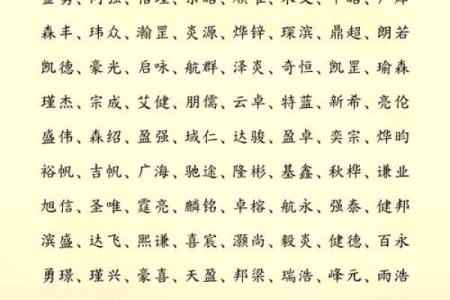 森丰、玮众、瀚罡、炎源、烨锌、琛滨、鼎超、朗若
凯德、豪光、启咏、航群、泽炎、奇恒、凯罡、瑜森
瑾杰、宗成、艾健、朋儒、云卓、特蓝、新希、亮伦
盛伟、森绍、盈强、域仁、达骏、盈卓、奕宗、烨昀
裕帆、吉帆、广海、驰途、隆彬、基鑫、秋桦、谦业
旭信、圣唯、霆亮、麟铭、卓榕、航永、强泰、健邦
滨盛、达飞、熙谦、喜宸、灏尚、毅炎、健德、百永
勇璟、瑾兴、豪喜、天盈、邦梁、瑞浩、峰元、雨浩